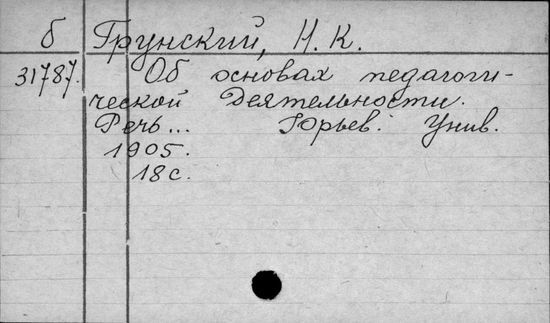 б Грунский, Н. К.
31787. Об основах педагоги-
ческой деятельности.
Речь... Юрьев. Унив.
1905.
18 с.